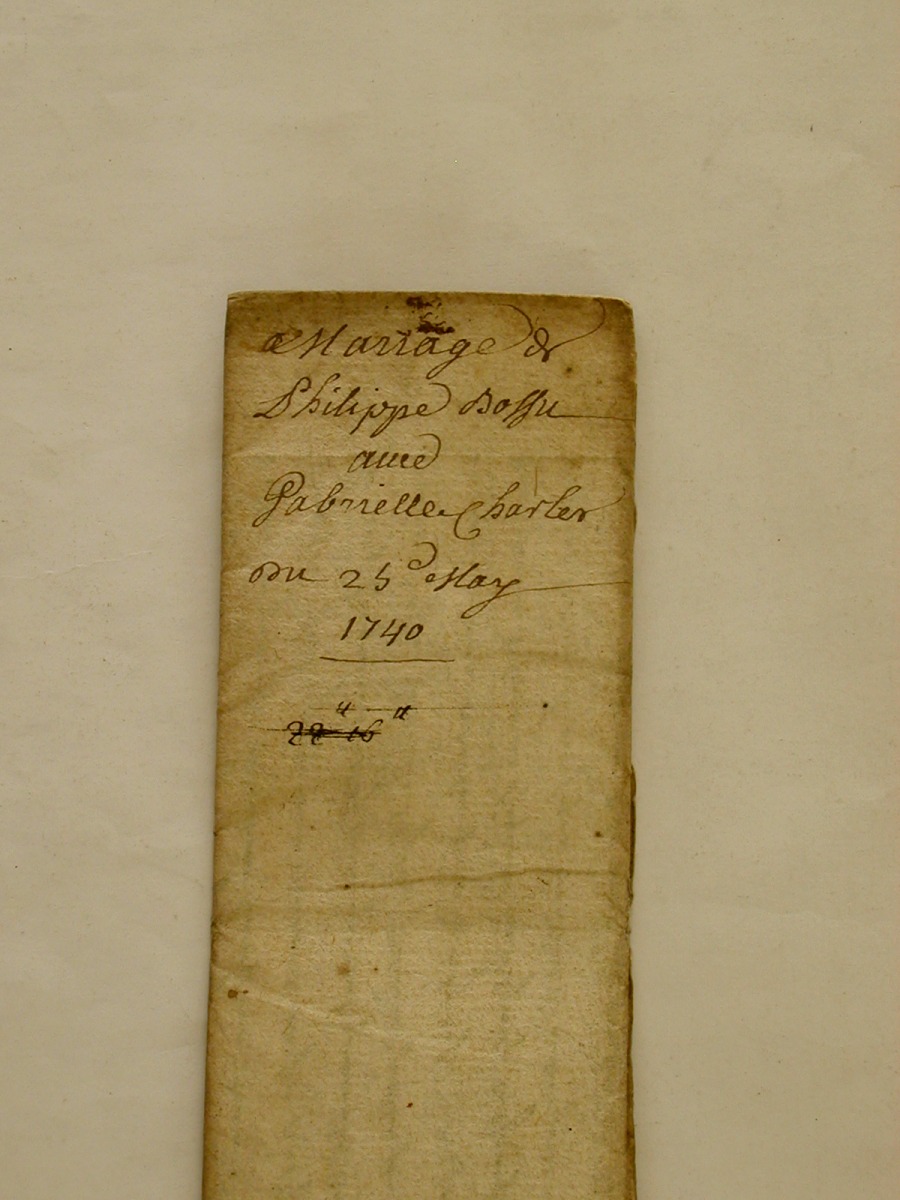 Mariage de
Philippe Bossu
avec
Gabrielle Charles
Du 25 May
1740